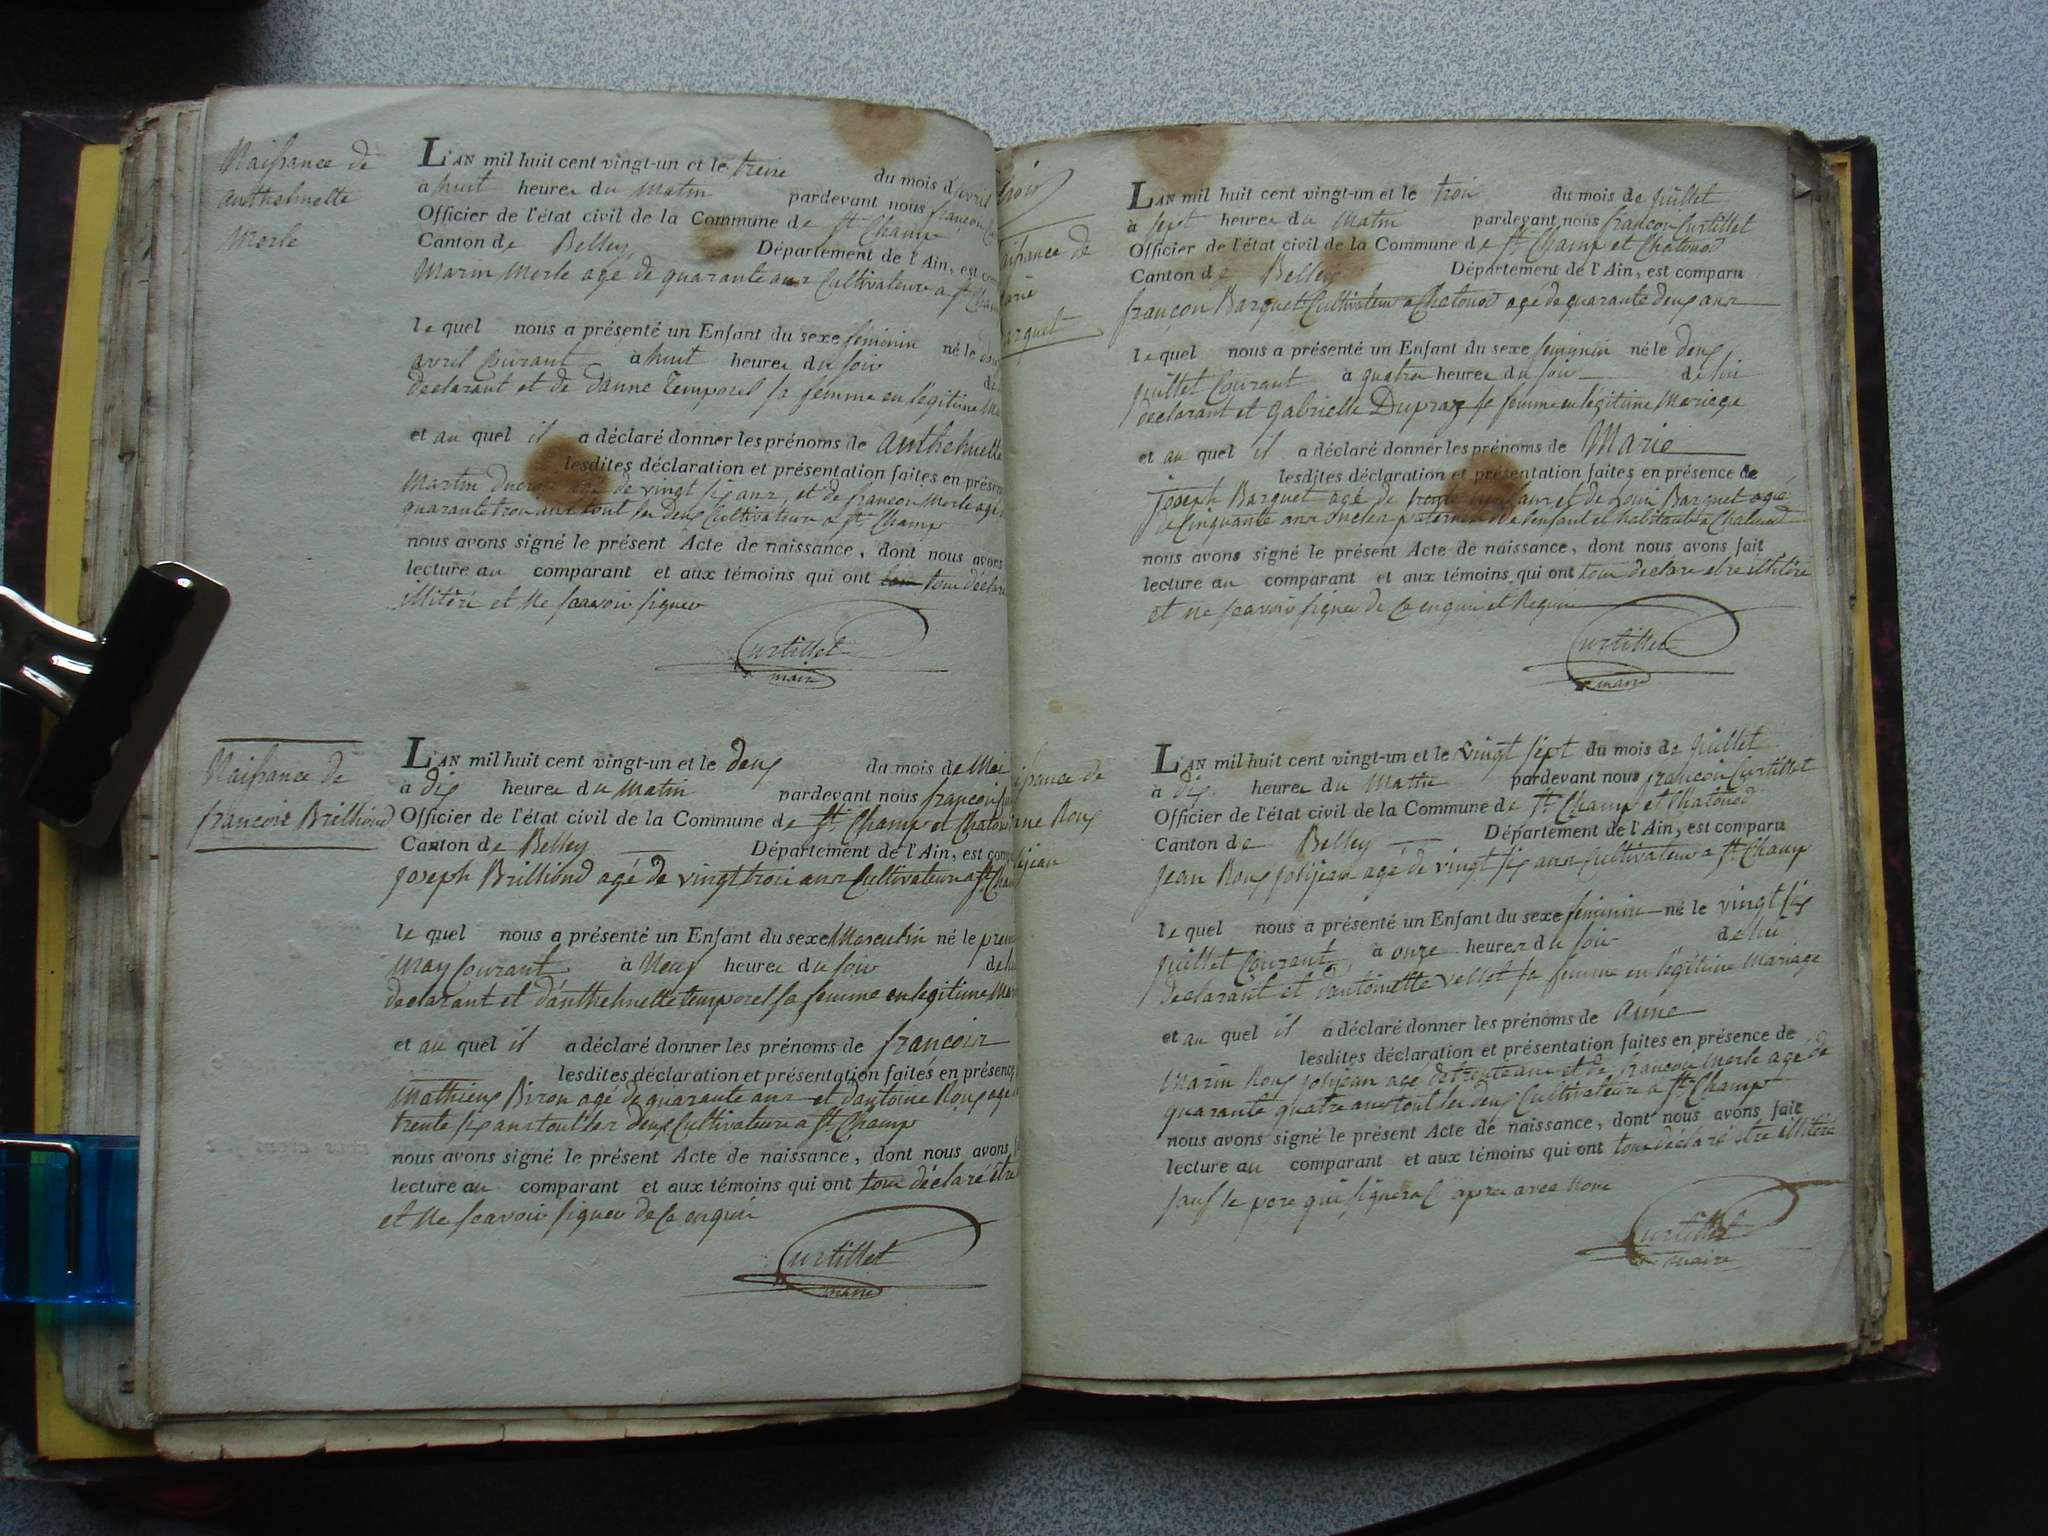 Naissance de
anthelmette
Merle
L'AN mil huit cent vingt-un et le treize du mois d'avril
a huit heures du Matin pardevant nous françois
Officier de l'état civil de la Commune de St Champ
Canton de Belley Département de l'Ain, est
Marin Merle agé de quarante ans Cultivateur a St
le quel nous a présenté un Enfant du sexe feminin né le
avril Courant à huit heures du soir de
declarant et de danne Temporel sa femme en légitime
et au quel il a déclaré donner les prénoms de anthelmette
lesdites déclaration et présentation faites en
Martin agé de vingt six ans, et de francois Merle agé
quarante trois ans tout les deux Cultivateur a St Champ
nous avons signé le présent Acte de naissance, dont nous avons
lecture au comparant et aux témoins qui ont tous
illitéré et ne scavoir signer
Curtillet
maire
Naissance de
francois Brilliond
L'AN mil huit cent vingt-un et le deux du mois de Mai
a dix heures du Matin pardevant nous francois
Officier de l'état civil de la Commune de St Champ et
Canton de Belley Département de l'Ain, est
joseph Brilliond agé de vingt trois ans Cultivateur a St
le quel nous a présenté un Enfant du sexe Masculin né le
May Courant à Neuf heures du soir
declarant et d'anthelmette temporel sa femme en legitime
et au quel il a déclaré donner les prénoms de francois
lesdites déclaration et présentation faites en
Mathieux Biron agé de quarante ans et d'antoine Roux agé
trente six ans tout les deux Cultivateur a St Champ
nous avons signé le présent Acte de naissance, dont nous avons
lecture au comparant et aux témoins qui ont tous déclaré être
et ne scavoir signer de ce enquis
Curtillet
maire
L'AN mil huit cent vingt-un et le trois du mois de juillet
à sept heures du Matin pardevant nous francois Curtillet
Officier de l'état civil de la Commune de St Champ et Chatonod
Canton de Belley Département de l'Ain, est comparu
françois Barquet Cultivateur a Chatonod agé de quarante deux ans
le quel nous a présenté un Enfant du sexe feminin né le deux
juillet Courant à quatre heures du soir de lui
declarant et gabrielle Dupraz se femme en légitime Mariage
et au quel il a déclaré donner les prénoms de Marie
lesdites déclaration et présentation faites en présence de
joseph Barquet agé de et de Louis Barquet agé
de Cinquante ans oncles paternel de l'enfant et habitants a Chatonod
nous avons signé le présent Acte de naissance, dont nous avons fait
lecture au comparant et aux témoins qui ont tous declaré etre illitéré
et ne scavoir signer de ce enquis et Requis
Curtillet
maire
L'AN mil huit cent vingt-un et le vingt sept du mois de juillet
à dix heures du Matin pardevant nous francois Curtillet
Officier de l'état civil de la Commune de St Champ et Chatonod
Canton de Belley Département de l'Ain, est comparu
jean Roux jolijean agé de vingt six ans Cultivateur a St Champ
le quel nous a présenté un Enfant du sexe feminin né le vingt six
juillet Courant à onze heures du soir de lui
declarant et d'antoinette vellet sa femme en légitime Mariage
et au quel il a déclaré donner les prénoms de anne
lesdites déclaration et présentation faites en présence de
Marin Roux jolijean agé de trente ans et de francois Merle agé de
quarante quatre ans tout les deux Cultivateur a St Champ
nous avons signé le présent Acte de naissance, dont nous avons fait
lecture au comparant et aux témoins qui ont tous déclaré etre illitéré
sauf le pere qui signera cy apres avec Nous
Curtillet
maire